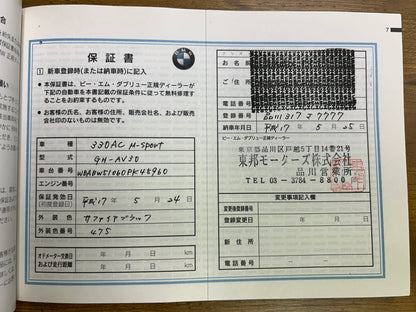 7
保証書
1 新車登録時(または納車時)に記入
●本保証書は、ビー・エム・ダブリュー正規ディーラーが
下記の自動車を本書記載の保証条件に従って無料修理す
ることをお約束するものです。
●お客様の氏名、お客様の住所、販売会社名、および販売
会社印のないものは無効です。
車種 330AC M-Sport
型式 GH-AV30
車台番号
エンジン番号
保証発効日 平成17年 5月 24日
(初度登録日)
外装色 サファイアブラック
外装色番号 475
オドメーター交換日 年 月 日 km
および走行距離 年 月 日 km
お名前
ご住所
電話番号
登録番号
納車年月日 平成17年 5月 25日
ビー・エム・ダブリュー正規ディーラー
東京都品川区戸越5丁目14番21号
東邦モーターズ株式会社
品川営業所
TEL 03-3784-8800
変更事項記入欄
変更後登録番号
登録変更日 年 月 日
新住所
電話番号